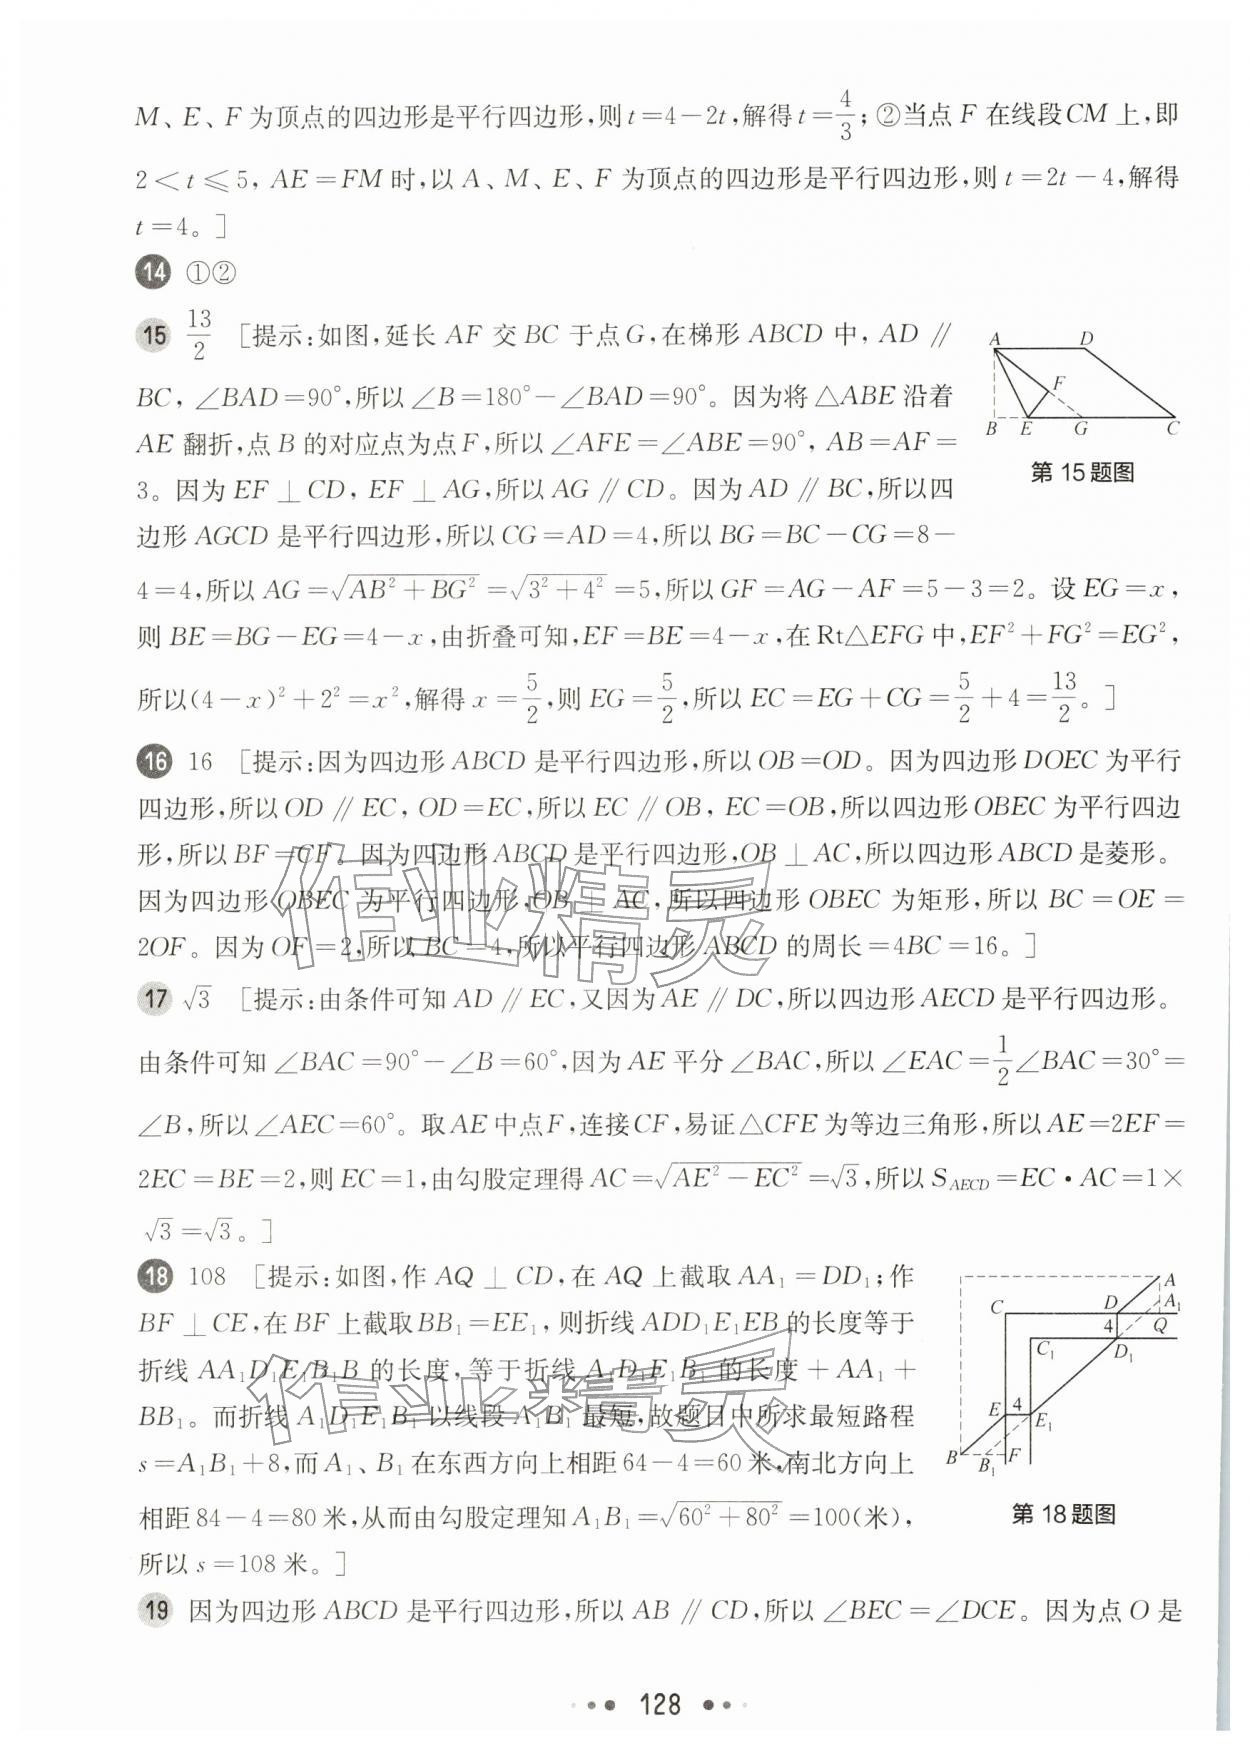 M、E、F 为顶点的四边形是平行四边形,则 t=4-2t,解得 t=4/3; ②当点 F 在线段CM 上,即
2<t⩽5, AE=FM 时,以 A、M、E、F 为顶点的四边形是平行四边形,则 t=2t-4,解得
t=4。]
14 ①②
15 13/2 [提示:如图,延长 AF 交 BC 于点 G,在梯形 ABCD 中, AD∥
BC, ∠BAD=90°,所以 ∠B=180°-∠BAD=90°。因为将 △ABE 沿着
AE 翻折,点 B 的对应点为点 F,所以 ∠AFE=∠ABE=90°, AB=AF=
3。因为 EF⊥CD, EF⊥AG,所以 AG∥CD。因为 AD∥BC,所以四
边形 AGCD 是平行四边形,所以 CG=AD=4,所以 BG=BC-CG=8-
4=4,所以 AG=√(AB²+BG²)=√(3²+4²)=5,所以 GF=AG-AF=5-3=2。设 EG=x,
则 BE=BG-EG=4-x,由折叠可知,EF=BE=4-x,在 Rt△EFG 中,EF²+FG²=EG²,
所以(4-x)²+2²=x²,解得 x=5/2,则 EG=5/2,所以 EC=EG+CG=5/2+4=13/2。]
A D F B E G C
第 15 题图
16 16 [提示:因为四边形 ABCD 是平行四边形,所以 OB=OD。因为四边形 DOEC 为平行
四边形,所以 OD∥EC, OD=EC,所以 EC∥OB, EC=OB,所以四边形 OBEC 为平行四边
形,所以 BF=CF。因为四边形 ABCD 是平行四边形,OB⊥AC,所以四边形 ABCD 是菱形。
因为四边形 OBEC 为平行四边形,OB⊥AC,所以四边形 OBEC 为矩形,所以 BC=OE=
2OF。因为 OF=2,所以 BC=4,所以平行四边形 ABCD 的周长=4BC=16。]
作业精灵
17 √3 [提示:由条件可知 AD∥EC,又因为 AE∥DC,所以四边形 AECD 是平行四边形。
由条件可知 ∠BAC=90°-∠B=60°,因为 AE 平分 ∠BAC,所以 ∠EAC=1/2∠BAC=30°=
∠B,所以 ∠AEC=60°。取 AE 中点 F,连接 CF,易证 △CFE 为等边三角形,所以 AE=2EF=
2EC=BE=2,则 EC=1,由勾股定理得 AC=√(AE²-EC²)=√3,所以 S_AECD=EC·AC=1×
√3=√3。]
18 108 [提示:如图,作 AQ⊥CD,在 AQ 上截取 AA₁=DD₁;作
BF⊥CE,在 BF 上截取 BB₁=EE₁, 则折线 ADD₁E₁EB 的长度等于
折线 AA₁D₁E₁B₁B 的长度,等于折线 A₁D₁E₁B₁ 的长度+AA₁+
BB₁。而折线 A₁D₁E₁B₁ 以线段 A₁B₁ 最短,故题目中所求最短路程
s=A₁B₁+8,而 A₁、B₁ 在东西方向上相距 64-4=60 米,南北方向上
相距 84-4=80 米,从而由勾股定理知 A₁B₁=√(60²+80²)=100(米),
所以 s=108 米。]
作业精灵
A C D A₁ 4 Q C₁ D₁ E 4 E₁ B B₁ F
第 18 题图
19 因为四边形 ABCD 是平行四边形,所以 AB∥CD,所以 ∠BEC=∠DCE。因为点 O 是
128